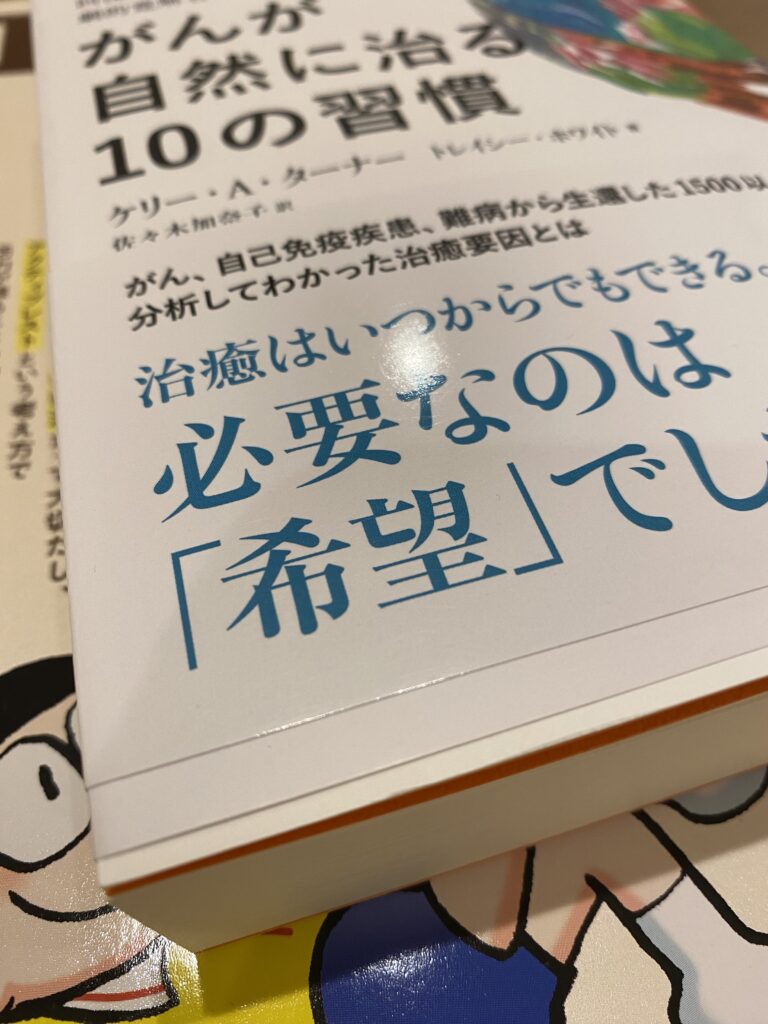 がんが
自然に治る
10の習慣
ケリー・A・ターナー トレイシー・ホワイト 著
佐々木加奈子 訳
がん、自己免疫疾患、難病から生還した1500以
分析してわかった治癒要因とは
治癒はいつからでもできる。
必要なのは
「希望」でし
という考え方で